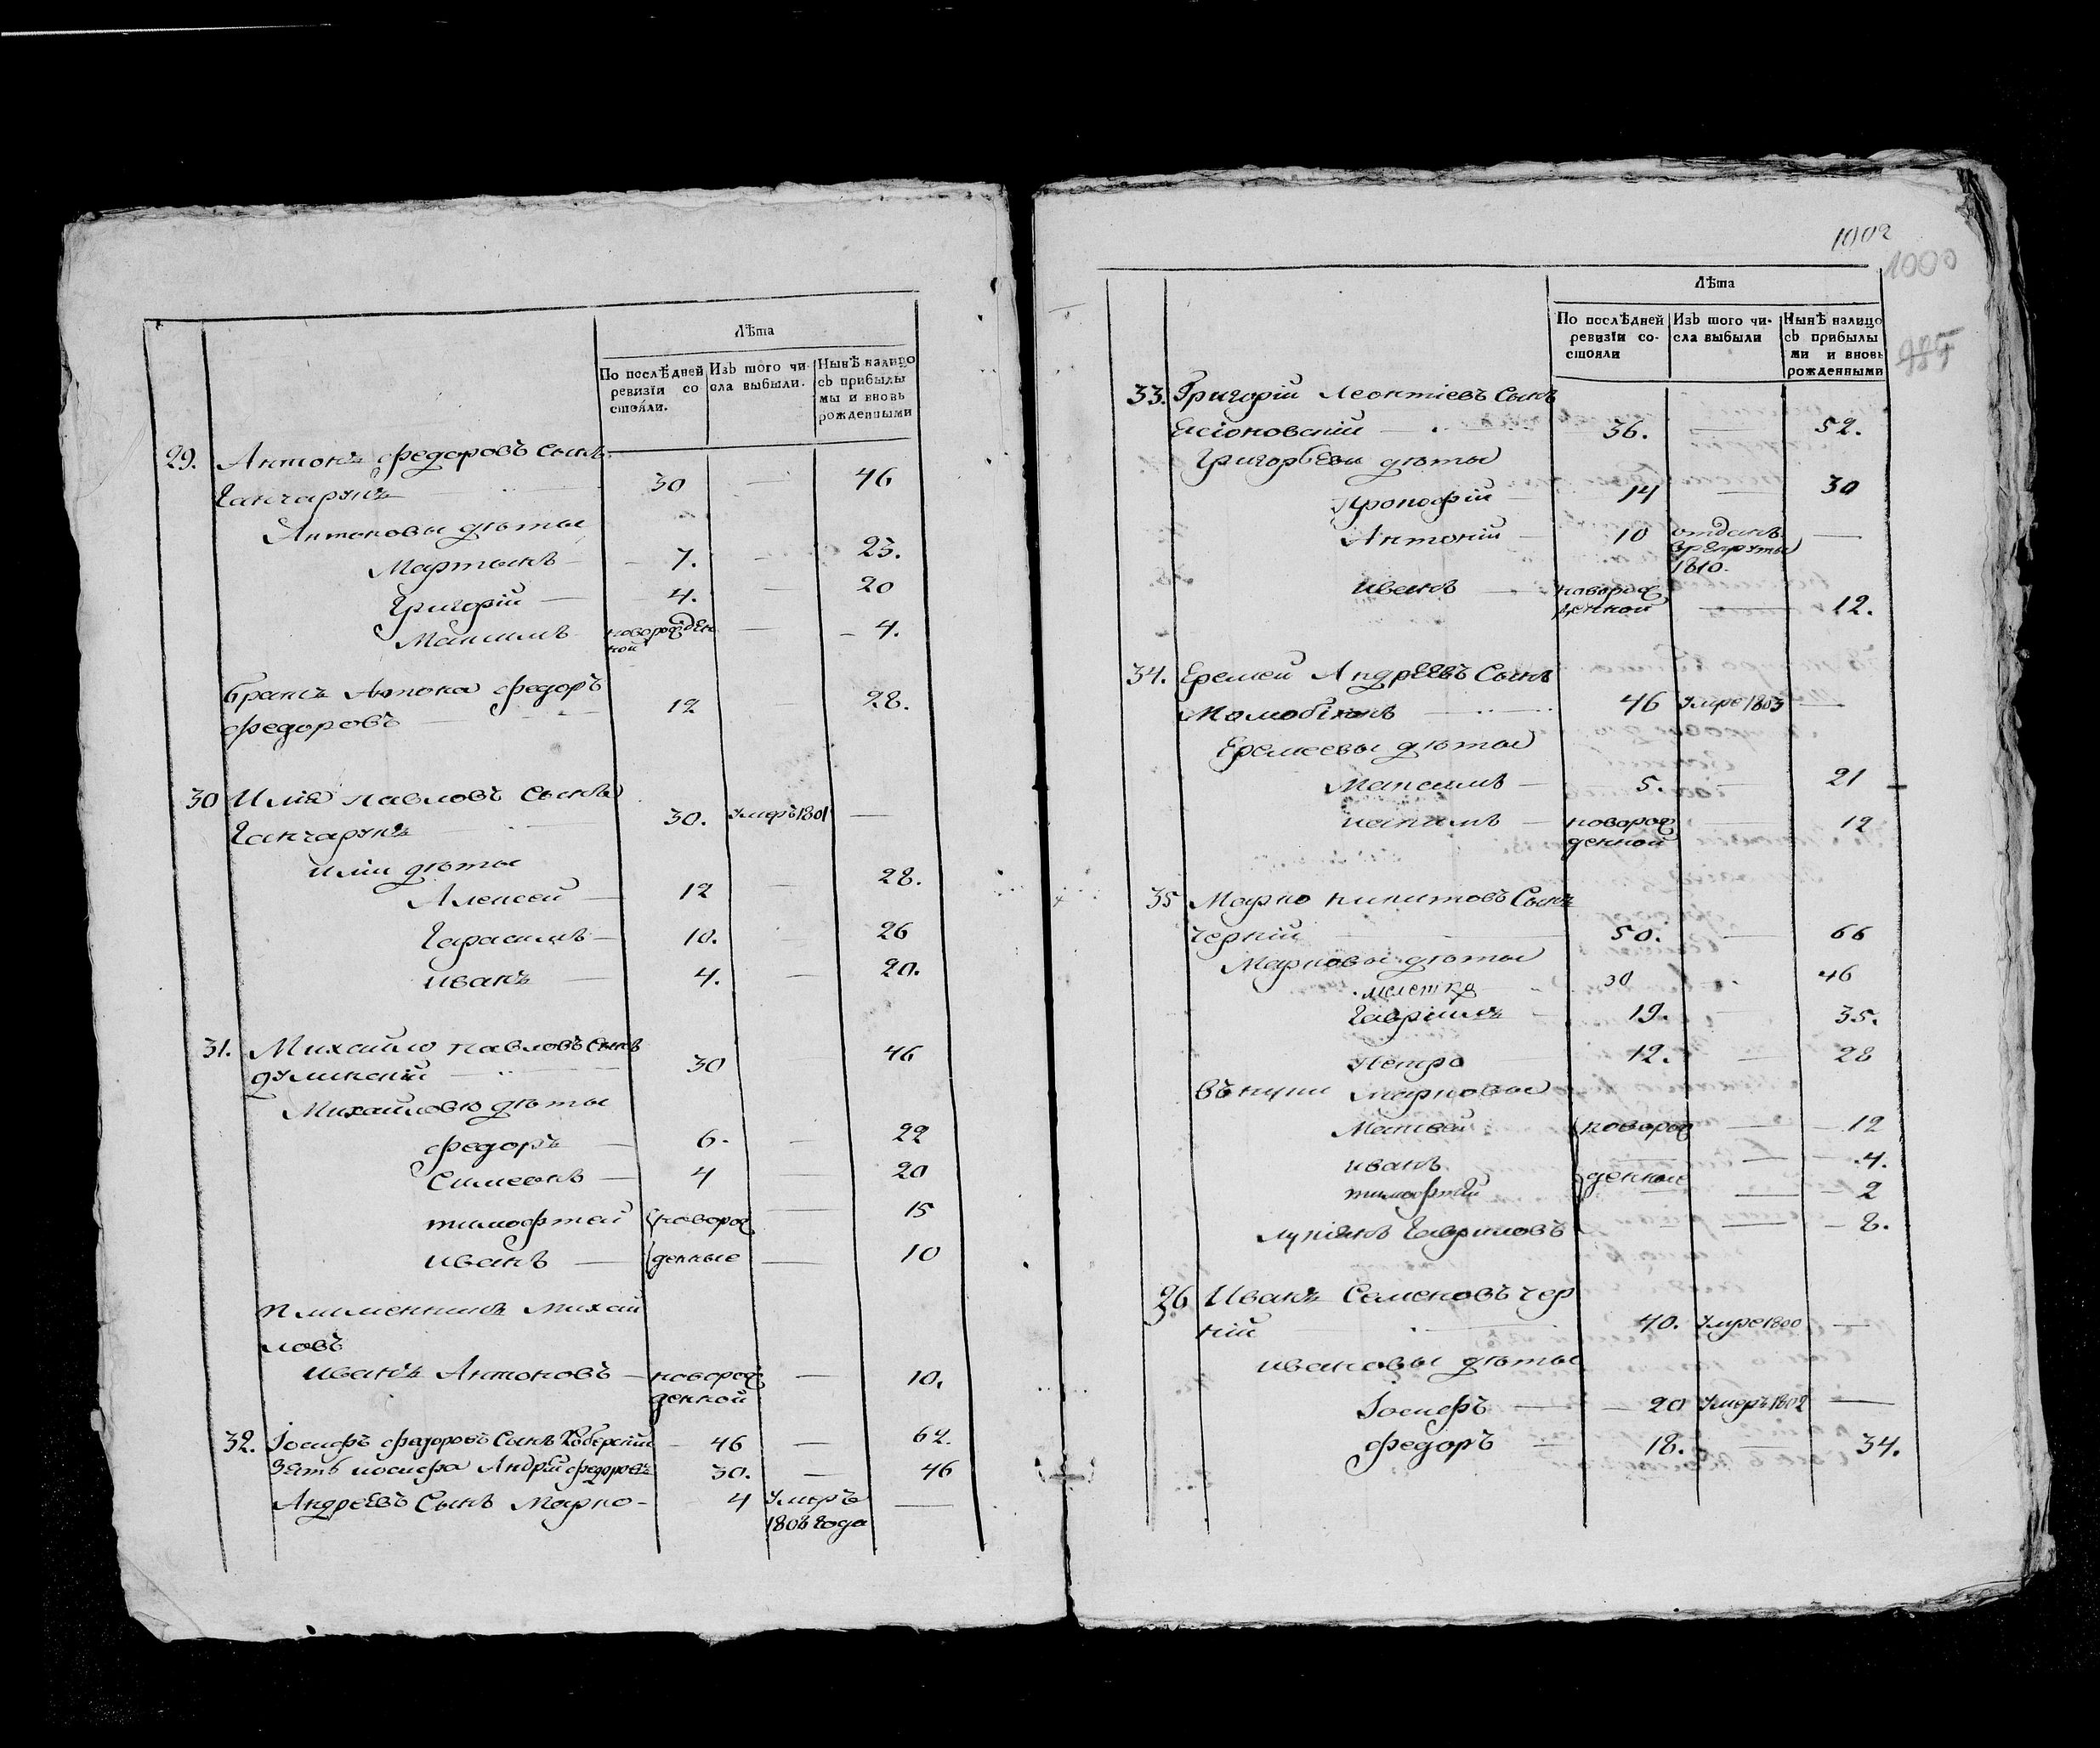 Лѣта
По послѣдней ревизіи со стояли.
Изъ того чи сла выбыли.
Нынѣ налицо съ прибылы мы и вновь рожденными
29. Антонъ Федоровъ Сынъ
Ганчарукъ 30 — 46
Антоновы дѣты
Мартынъ — 7. — 23.
Григорій — 4. — 20
Максимъ новорожден ной — 4.
братъ Антона Федоръ
Федоровъ 12 — 28.
30 Илія Павловъ Сынъ
Ганчарукъ 30. Умеръ 1801 —
иліи дѣты
Алексей — 12 — 28.
Гарасимъ — 10. — 26
иванъ — 4. — 20.
31. Михайло Павловъ Сынъ
думинскій 30 46
Михайловы дѣты
Федоръ — 6. — 22
Симеонъ — 4 — 20
тимофтей новорож — 15
иванъ — денные — 10
Племенникъ Михай
ловъ
иванъ Антоновъ — новорож денной — 10.
32. Іосифъ Федоровъ Сынъ — 46 — 62.
Зять иосифа Андрій Федоровъ 30. — 46
Андреевъ Сынъ Марко — 4 Умеръ —
года
1002
1000
985
Лѣта
По послѣдней ревизіи со- стояли
Изъ того чи- сла выбыли
Нынѣ налицо съ прибылы ми и вновь рожденными
33. Григорій Леонтіевъ Сынъ
36. — 52.
Григорьеви дѣты
Прокофій 14 — 30
Антоній 10 отданъ —
врекруты
1810.
иванъ — новорож денной — 12.
34. Еремей Андреевъ Сынъ
46 Умре 1803 —
Еремеевы дѣты
Максимъ — 5. — 21
— новорож денной — 12
35 Марко Никитовъ Сынъ
Чернiй 50. — 66
Марковы дѣты
30 46
Гаврiилъ — 19. — 35.
Петро 12. — 28
Внуки Марковы
Матвей новорож — 12
иванъ — 4.
тимофтей денные — 2
лукіянъ Гавриловъ — 8.
36 Иванъ Семеновъ Чер
ній 40. Умре 1800 —
ивановы дѣты
Іосифъ — 20 Умеръ 1802 —
Федоръ — 18. — 34.